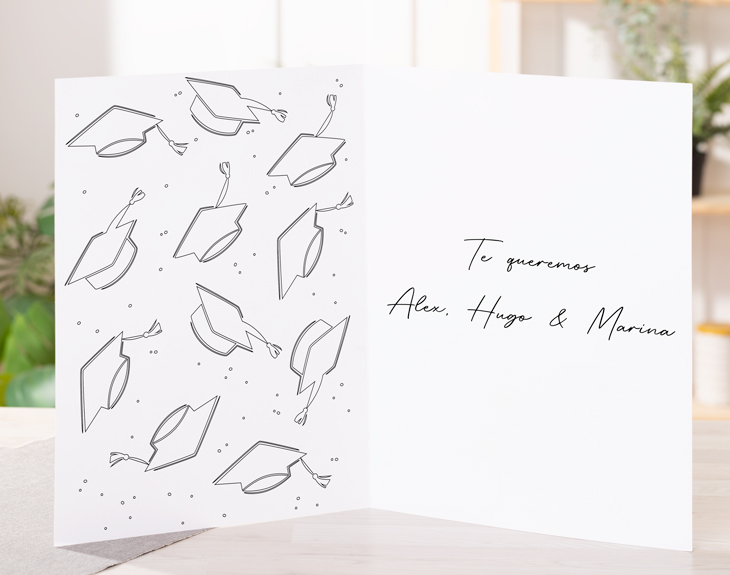 Te queremos
Alex, Hugo & Marina